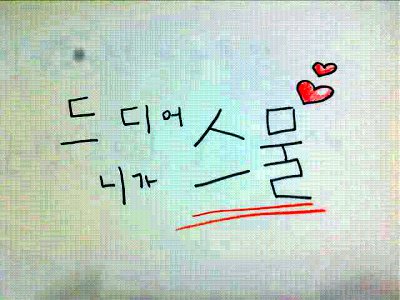 드디어
니가
스물